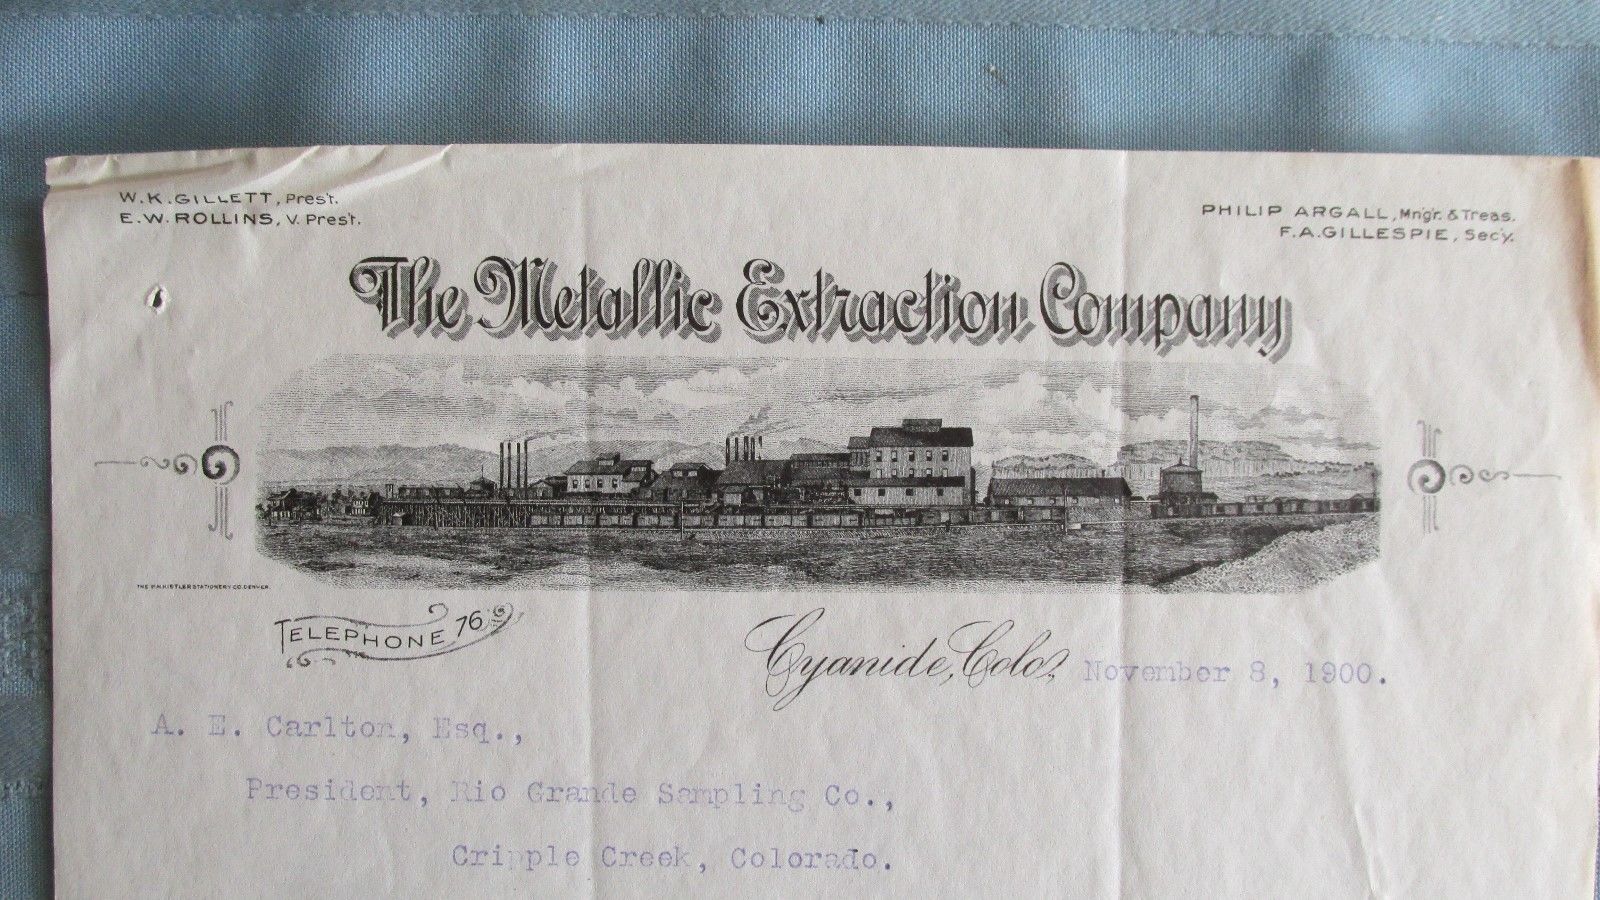 W.K.GILLETT, Pres't.
E.W.ROLLINS, V. Pres't.
PHILIP ARGALL, Mn'g'r. & Treas.
F.A.GILLESPIE, Sec'y.
The Metallic Extraction Company
THE W.H.KISTLER STATIONERY CO. DENVER.
TELEPHONE 76
Cyanide, Colo., November 8, 1900.
A. E. Carlton, Esq.,
President, Rio Grande Sampling Co.,
Cripple Creek, Colorado.